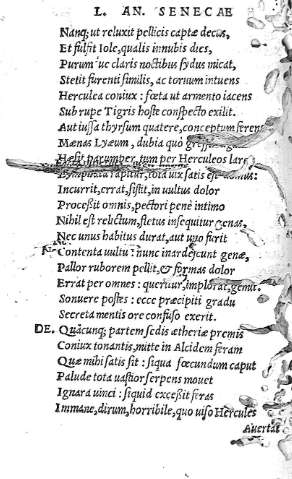 L. AN. SENECAE
Nanq; ut reluxit pellicis captæ decus,
Et fulsit Iole, qualis innubis dies,
Purum ue claris noctibus sydus micat,
Stetit furenti similis, ac toruum intuens
Herculea coniux: fœta ut armento iacens
Sub rupe Tigris hoste conspecto exilit.
Aut iussa thyrsum quatere, conceptum ferens
Mænas Lyæum, dubia quò
Hæsit parumper, tum per Herculeos lares
rapitur, tota uix satis est
Incurrit, errat, sistit, in uultus dolor
Processit omnis, pectori penè intimo
Nihil est relictum, fletus insequitur genas,
Nec unus habitus durat, aut uno furit
Contenta uultu: nunc inardescunt genæ,
Pallor ruborem pellit, & formas dolor
Errat per omnes: queritur, implorat, gemit.
Sonuere postes: ecce præcipiti gradu
Secreta mentis ore confuso exerit.
DE. Quácunq; partem sedis ætheriæ premis
Coniux tonantis, mitte in Alcidem feram
Quæ mihi satis sit: siqua fœcundum caput
Palude tota uastior serpens mouet
Ignara uinci: siquid excessit feras
Immane, dirum, horribile, quo uiso Hercules
Auertat